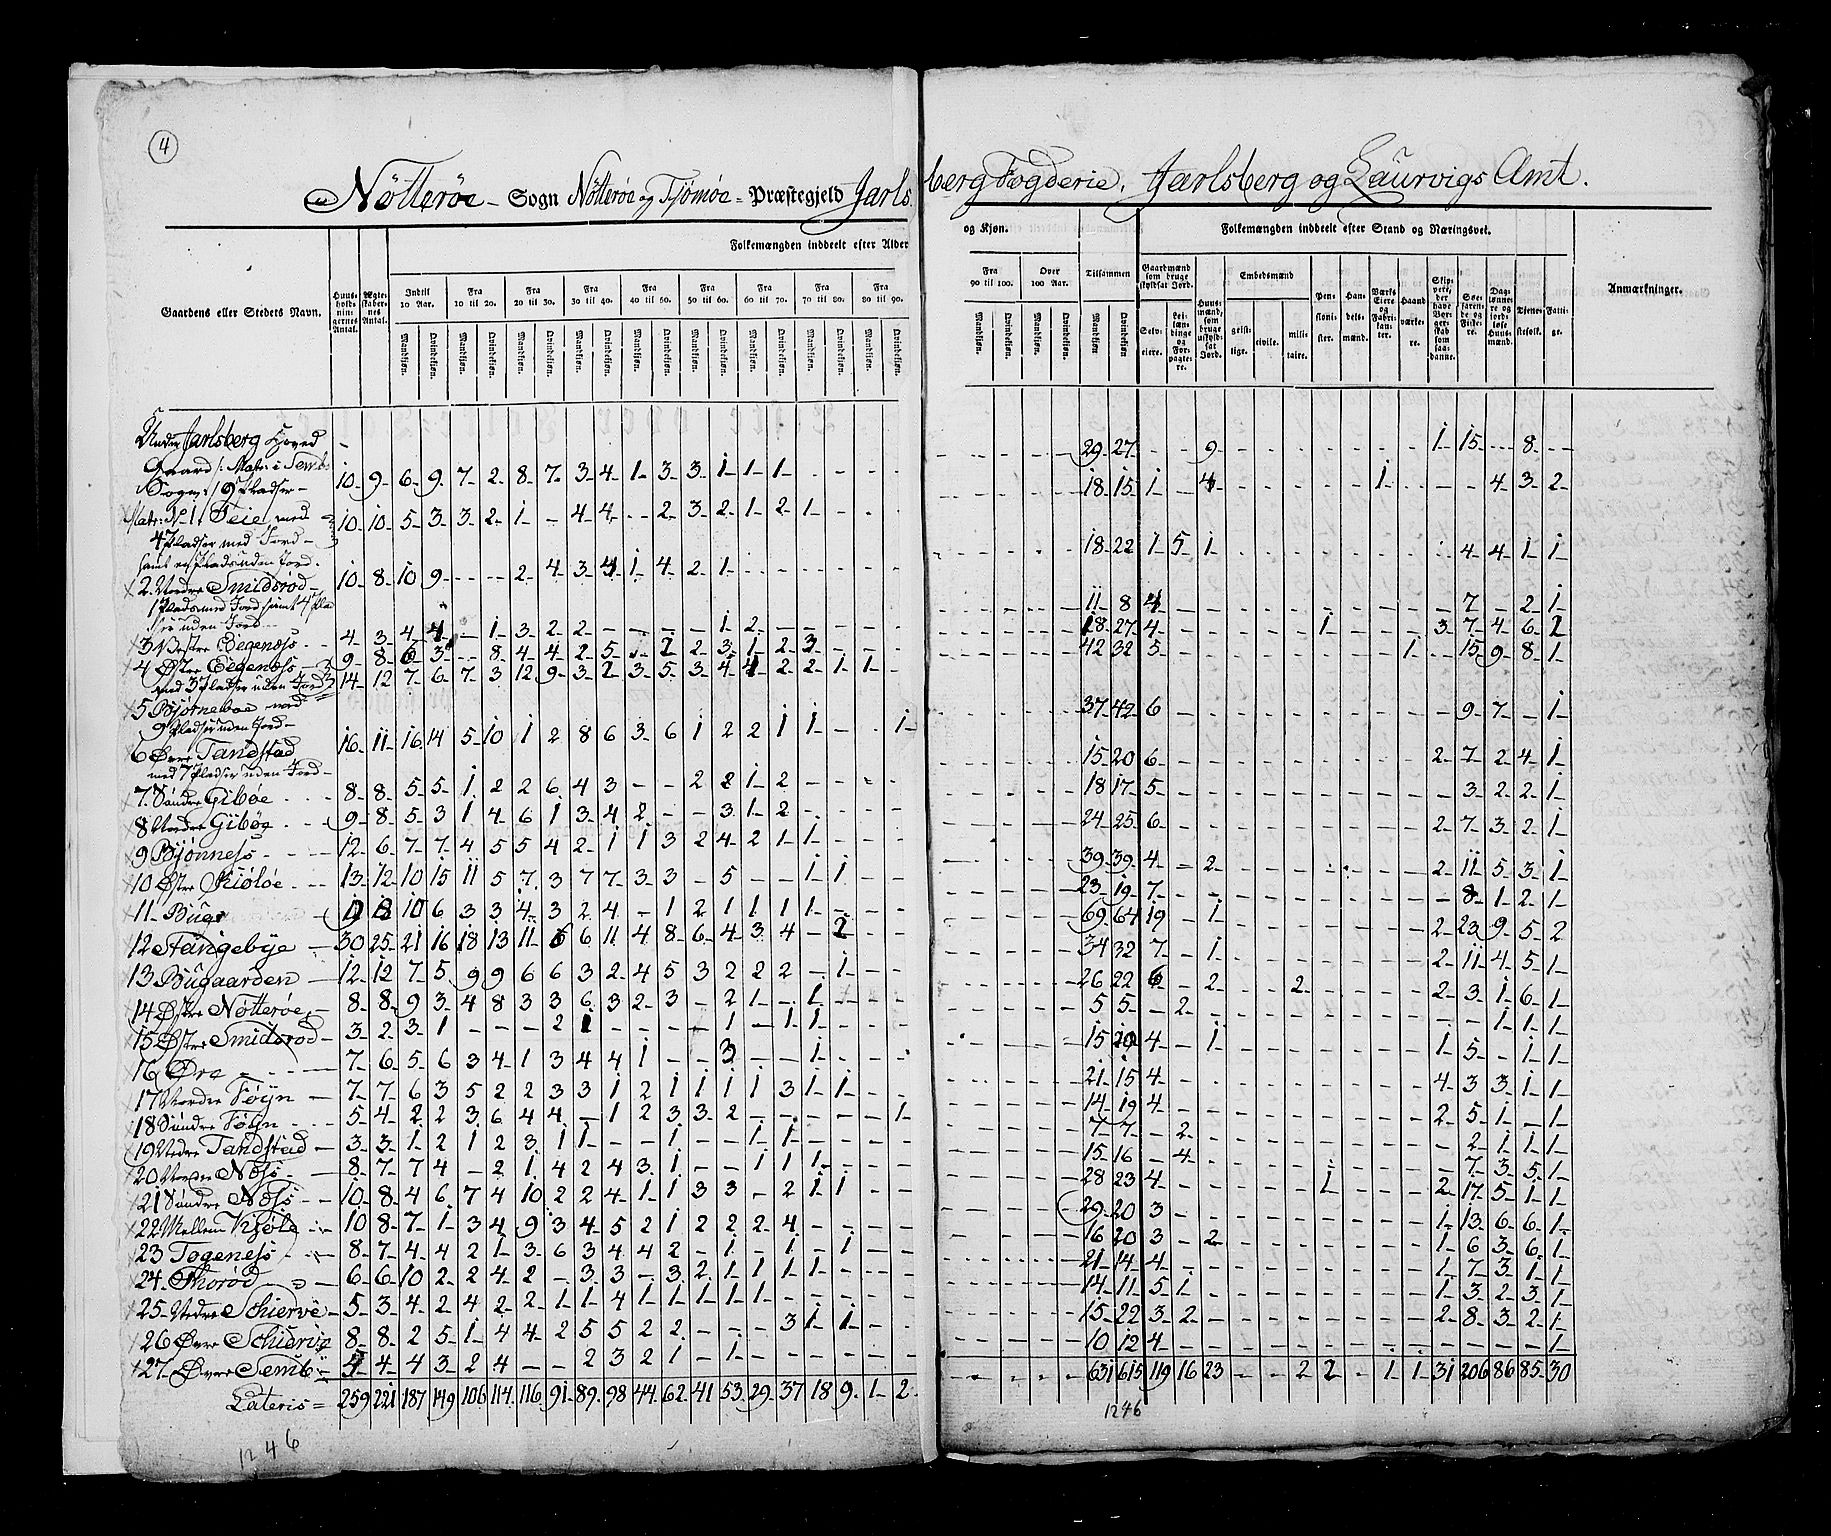 4
Nötteröe Sogn Nötteröe og Tjömöe Præstegjeld Jarlsberg Fogderie. Jarlsberg og Laurvigs Amt.
Gaardens eller Steders Navn.
Huusholdningernes Antal.
Ægteskabernes Antal.
Folkemængden inddeelt efter Alder og Kjøn.
Indtil 10 Aar.
Fra 10 til 20.
Fra 20 til 30.
Fra 30 til 40.
Fra 40 til 50.
Fra 50 til 60.
Fra 60 til 70.
Fra 70 til 80.
Fra 80 til 90.
Fra 90 til 100.
Over 100 Aar.
Tilsammen
Mandkjøn. Qvindekjøn.
Folkemængden inddeelt efter Stand og Næringsvei.
Gaardmænd som bruge skyldsat Jord.
Selveiere.
Leilændinge og Forpagtere.
Huusmænd, som bruge uskyldsat Jord.
Embedsmænd
geistlige.
civile.
militaire.
Pensionister.
Handelsmænd.
Værks Eiere og Fabrikanter.
Haandværkere.
Skippere, der have Borgerskab som saadanne.
Søefarende og Fiskere.
Daglønnere og jordløse Huusmænd.
Tjenestefolk.
Fattige.
Anmærkninger.
Under Jarlsberg Hoved
Gaard /: Matr: i Semb
Sogn :/ 9 Pladser 10 9 6 9 7 2 8 7 3 4 1 3 3 1 1 1 29 27 9 1 15 8
Matr: N 1. Teie med 10 10 5 3 3 2 1 4 4 2 3 2 1 2 1 18 15 1 4 1 4 3 2
4 Pladser med Jord
samt en Plads uden Jord.
2. Nordre Smidsrod 10 8 10 9 2 4 3 4 1 4 2 1 18 22 1 5 1 4 4 1 1
1 Plads med Jord samt 4 Pla
ser uden Jord
3 Vestre Eegeness 4 3 4 4 1 3 2 2 1 2 11 8 4 7 2 1
4 Østre Eegeness 9 8 6 3 8 4 4 2 5 2 2 3 1 2 3 18 27 4 1 3 7 4 6 2
med 3 Pladser uden Jord 14 12 7 6 7 3 12 9 3 2 3 5 3 4 4 2 2 1 1 42 32 5 1 15 9 8 1
5 Bjørneboe med
9 Pladser uden Jord 16 11 16 14 5 10 1 2 8 6 3 6 1 2 2 1 1 1 37 42 6 9 7 1
6 Øvre Tandstad
med 7 Pladser uden Jord
7. Søndre Gibøe 8 8 5 5 1 2 2 6 4 3 2 2 1 2 15 20 6 2 7 2 4 1
8 Nordre Gibøe 9 8 5 3 1 4 6 1 3 4 2 3 1 2 18 17 5 3 2 2 1
9 Bjønness 12 6 7 7 4 5 5 4 2 1 1 3 2 4 2 1 1 24 25 6 2 7 3 2 1
10 Østre Kiøløe 13 12 10 15 11 5 7 3 7 7 3 3 5 1 1 39 39 4 2 2 11 5 3 1
11 10 6 3 3 4 3 2 4 1 2 1 1 1 1 23 19 7 8 1 2 1
12 Stangebye 30 25 21 16 18 13 11 6 6 11 4 8 6 4 3 4 2 69 64 19 1 2 23 9 5 2
13 Bugaarden 12 12 7 5 9 9 6 6 3 2 4 5 3 2 2 2 1 34 32 7 1 2 11 4 5 1
14 Østre Nötteröe 8 8 9 3 4 8 3 3 6 3 2 3 2 1 1 26 22 6 2 2 2 3 1 6 1
15 Østre Smidsrod 3 2 3 1 2 1 1 1 1 5 5 2 1 1 1
16 Øra 7 6 5 6 3 4 1 3 4 4 1 3 1 15 20 4 1 1 5 1 1
17 Nordre Føyn 7 7 6 3 5 2 2 3 3 1 2 1 1 1 1 3 1 1 21 15 4 4 3 3 1 1
18 Søndre Føyn 5 4 2 2 3 6 4 4 1 2 3 3 2 1 14 19 4 2 5 1 1
19 Nedre Tandstad 3 3 1 2 1 2 3 1 1 1 1 1 7 7 2 2 1 1 1
20 Nordre Nøss 8 7 7 4 2 1 4 2 4 3 1 1 1 1 1 15 16 4 7 3 5 1
21 Søndre Nøss 10 8 4 6 7 4 10 2 2 4 1 1 3 3 2 1 1 28 23 4 1 2 17 5 1 1
22 Mellem Kjøle 10 8 7 1 3 4 9 3 4 5 2 1 2 2 2 4 29 20 3 1 13 6 6 1
23 Togeness 8 7 4 4 2 1 3 6 3 4 4 2 1 1 1 16 20 3 2 1 6 3 6 1
24. Thorød 6 6 10 2 2 4 2 3 3 3 2 1 1 1 1 21 14 4 1 7 3 1 1
25 Nedre Schierve 5 3 4 2 4 2 2 1 1 4 1 1 1 1 1 14 11 5 1 1 3 2 3 1
26 Øvre Schierve 8 8 2 5 1 4 4 2 5 5 2 2 3 1 1 15 22 3 2 2 8 3 2 1
27 Øvre Semb 4 4 4 3 2 4 2 3 2 1 1 10 12 4 1
Lateris = 259 221 187 149 106 114 116 91 89 98 44 62 41 53 29 37 18 9 1 2 631 615 119 16 23 2 2 1 1 31 206 86 85 30
1246
1246